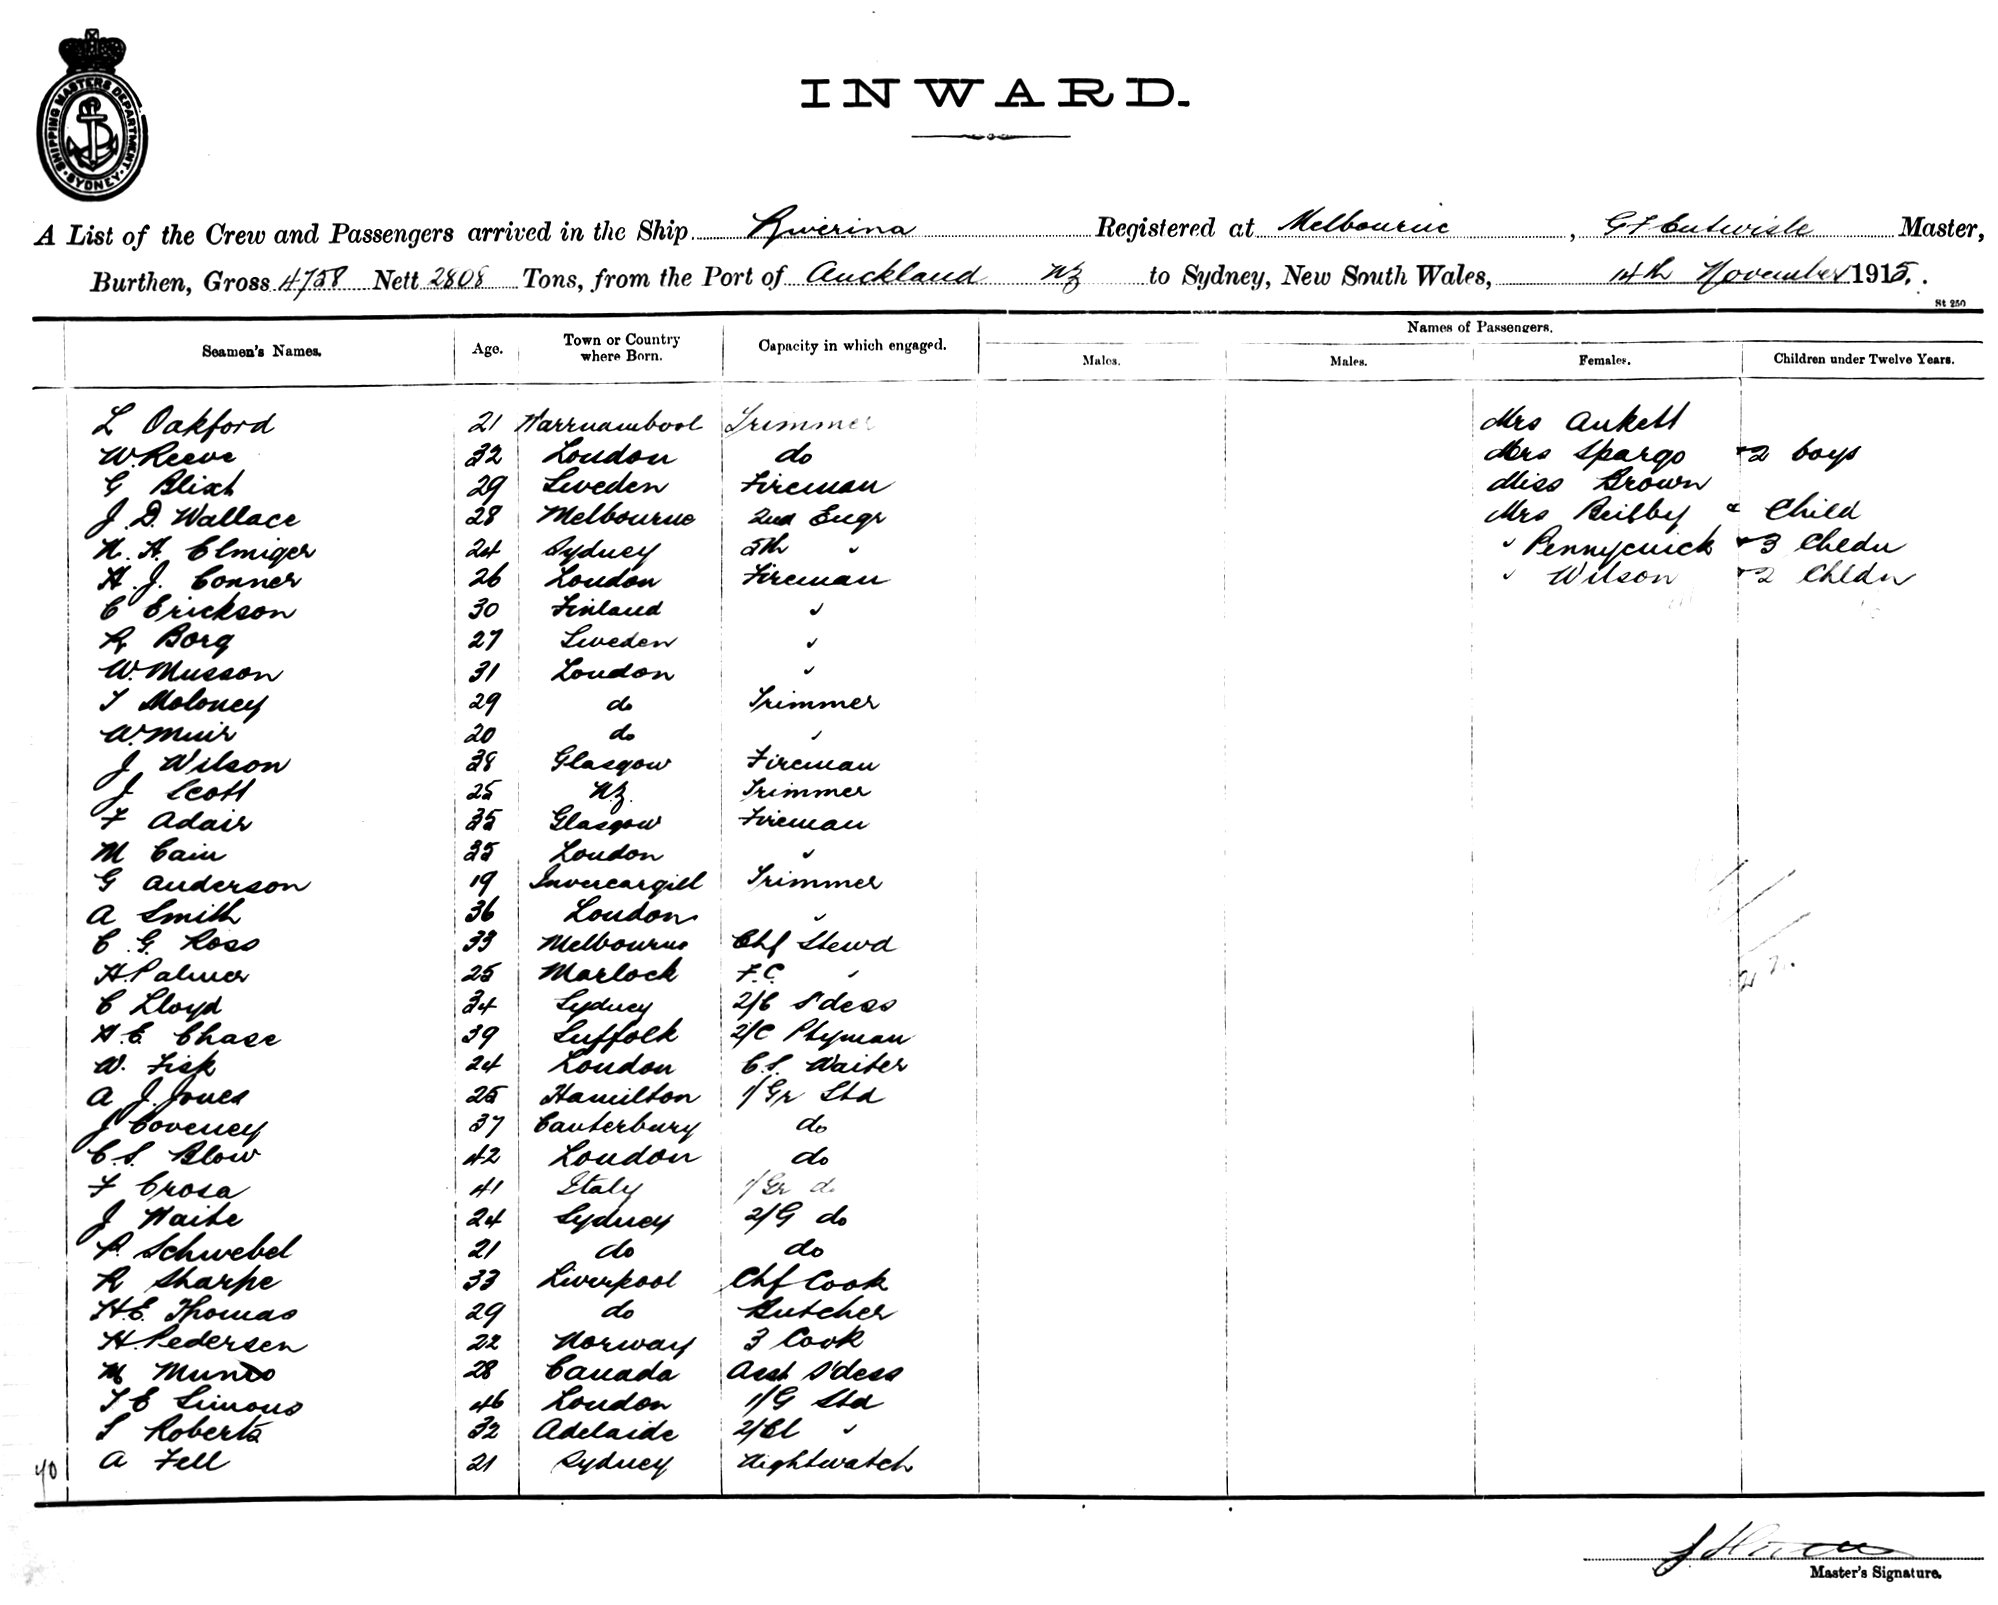 SHIPPING MASTERS DEPARTMENT. SYDNEY.
INWARD.
A List of the Crew and Passengers arrived in the Ship Riverina Registered at Melbourne, G F Entwisle Master,
Burthen, Gross 4758 Nett 2808 Tons, from the Port of Auckland NZ to Sydney, New South Wales, 14th November 1915.
St 250
Names of Passengers.
Seamen's Names. Age. Town or Country where Born. Capacity in which engaged. Males. Males. Females. Children under Twelve Years.
L Oakford 21 Warrnambool Trimmer Mrs Ankett
W. Reeve 32 London do Mrs Spargo + 2 boys
G Blixt 29 Sweden Fireman Miss Brown
J. D. Wallace 28 Melbourne 2nd Engr Mrs Beilby & Child
N. A. Elmiger 24 Sydney 5th " " Pennycuick + 3 Chldn
H. J. Conner 26 London Fireman " Wilson + 2 Chldn
C Erickson 30 Finland "
R Borg 27 Sweden "
W. Musson 31 London "
T Moloney 29 do Trimmer
W. Muir 20 do "
J Wilson 38 Glasgow Fireman
J Scott 25 NZ Trimmer
F Adair 35 Glasgow Fireman
M Cain 35 London "
G Anderson 19 Invercargill Trimmer
A Smith 36 London "
C. G. Ross 33 Melbourne Chf Stewd
H. Palmer 25 Marlock F.C. "
C Lloyd 34 Sydney 2/C S'dess
H. E. Chase 39 Suffolk 2/C Ptyman
W. Fisk 24 London C.S. Waiter
A J. Jones 25 Hamilton 1/Gr Std
J Coveney 37 Canterbury do
C. S. Blow 42 London do
F Crosa 41 Italy 1/Gr do
J Waite 24 Sydney 2/G do
P. Schwebel 21 do do
R Sharpe 33 Liverpool Chf Cook
H. E. Thomas 29 do Butcher
H. Pedersen 22 Norway 3 Cook
M Munro 28 Canada Asst S'dess
T E Simons 46 London 1/G Std
S Roberts 32 Adelaide 2/Cl "
A Fell 21 Sydney Nightwatch
40
Master's Signature.